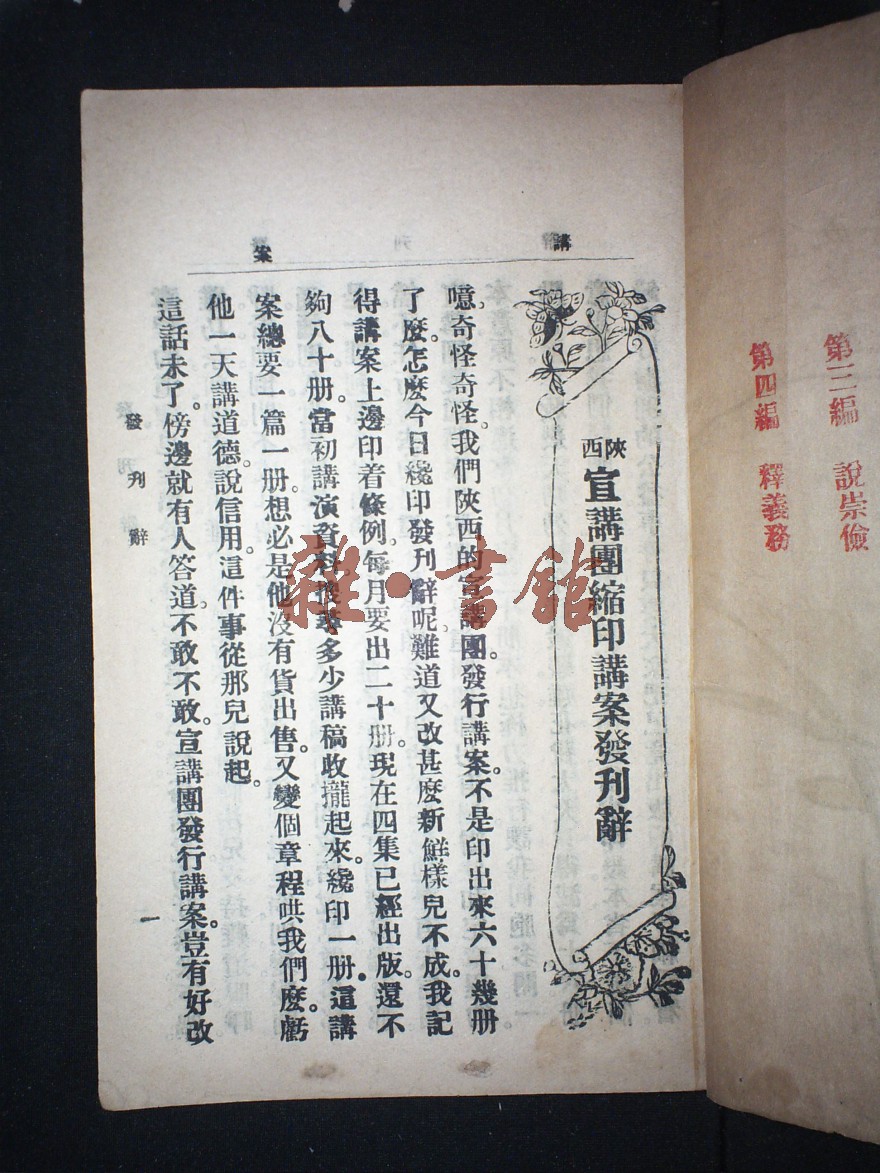 第三編　說崇儉
第四編　釋義務
講案
陝西宣講團縮印講案發刊辭
噫。奇怪奇怪。我們陝西的宣講團。發行講案。不是印出來六十幾册
了麽。怎麽今日纔印發刊辭呢。難道又改甚麽新鮮樣兒不成。我記
得講案上邊印着條例。每月要出二十册。現在四集已經出版。還不
夠八十册。當初講演資料。搜尋多少講稿收攏起來。纔印一册。這講
案總要一篇一册。想必是他沒有貨出售。又變個章程哄我們麽。虧
他一天講道德。說信用。這件事從那兒說起。
這話未了。傍邊就有人答道。不敢不敢。宣講團發行講案。豈有好改
發刊辭
一
雜·書館